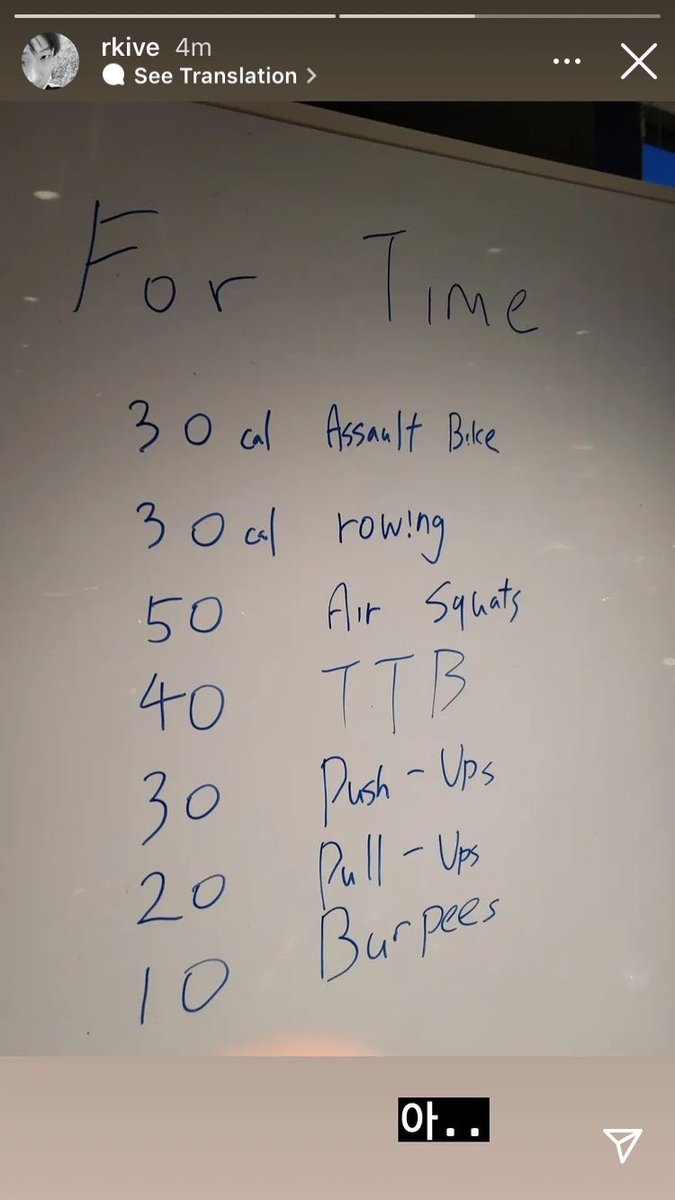 rkive 4m
See Translation >
For Time
30 cal Assault Bike
30 cal rowing
50 Air Squats
40 TTB
30 Push-Ups
20 Pull-Ups
10 Burpees
아..